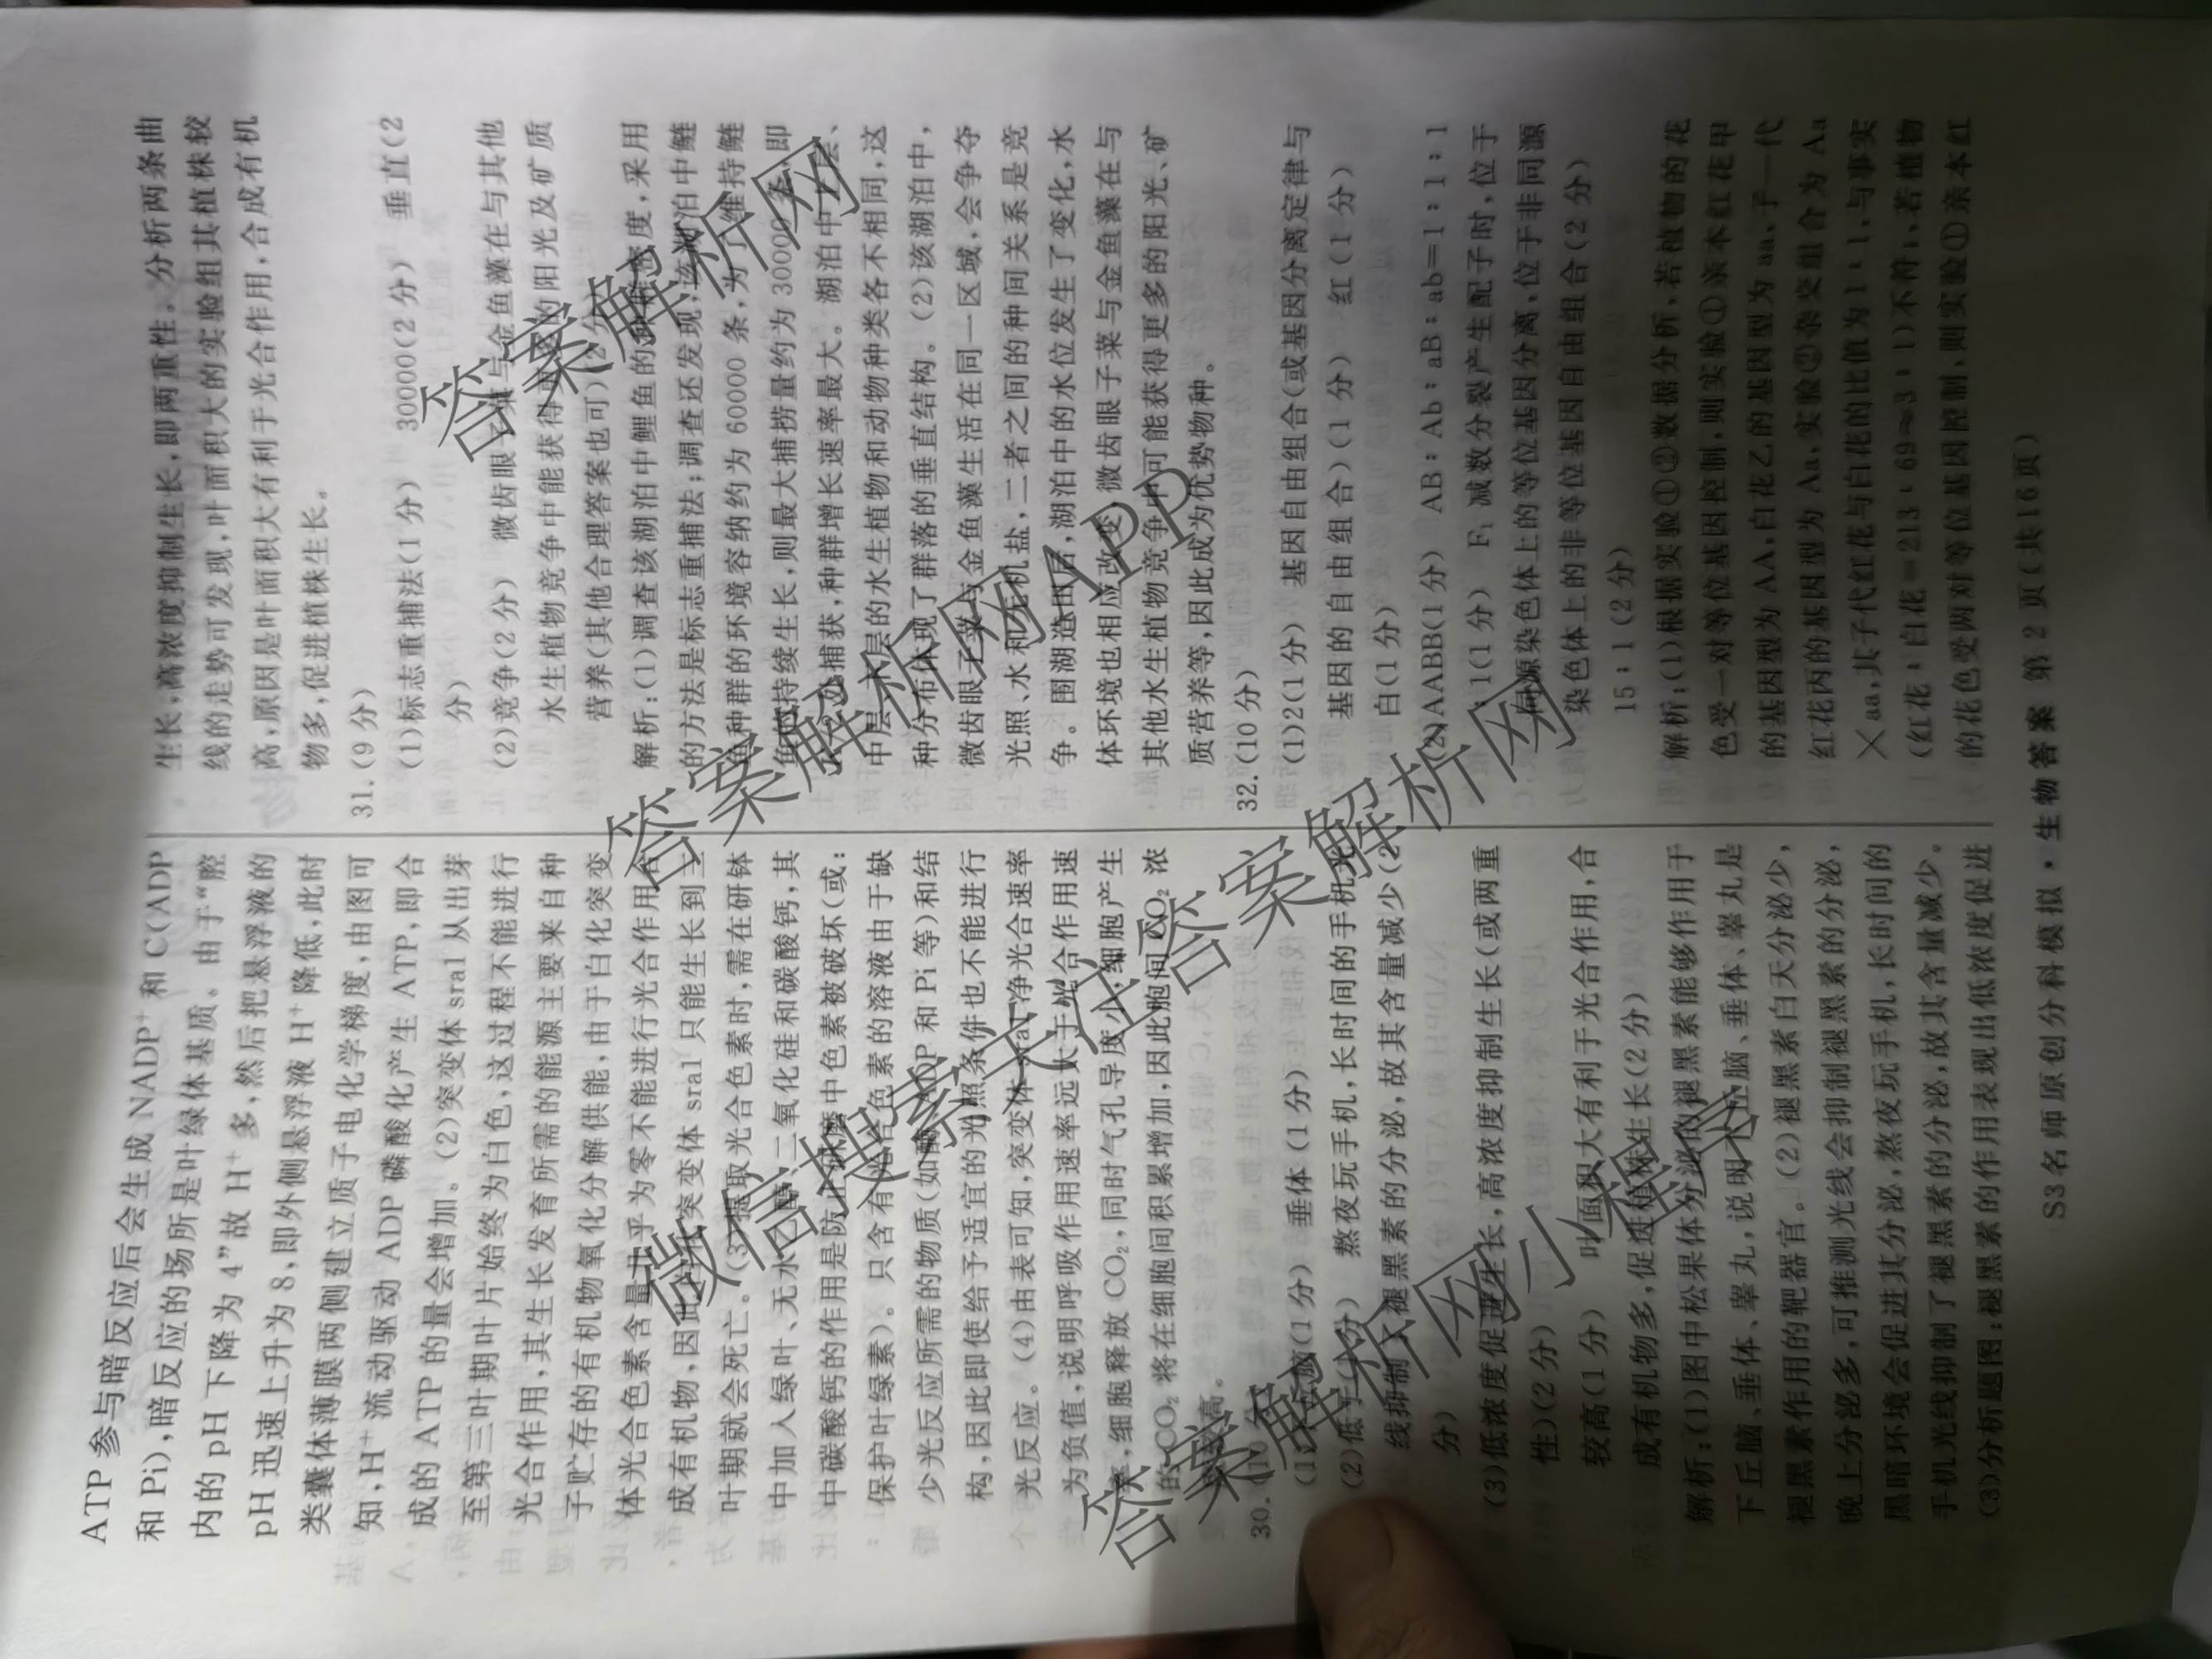 ATP 参与暗反应后会生成 NADP⁺ 和 C(ADP
和 Pi),暗反应的场所是叶绿体基质。由于“腔
内的 pH 下降为 4”故 H⁺ 多,然后把悬浮液的
pH 迅速上升为 8,即外侧悬浮液 H⁺ 降低,此时
类囊体薄膜两侧建立质子电化学梯度,由图可
知,H⁺ 流动驱动 ADP 磷酸化产生 ATP,即合
成的 ATP 的量会增加。(2)突变体 sral 从出芽
至第三叶期叶片始终为白色,这过程不能进行
光合作用,其生长发育所需的能源主要来自种
子贮存的有机物氧化分解供能,由于白化突变
体光合色素含量几乎为零不能进行光合作用合
成有机物,因此突变体 sral 只能生长到三
叶期就会死亡。(3)提取光合色素时,需在研钵
中加入绿叶、无水乙醇、二氧化硅和碳酸钙,其
中碳酸钙的作用是防止研磨中色素被破坏(或:
保护叶绿素)。只含有光合色素的溶液由于缺
少光反应所需的物质(如酶、ADP 和 Pi 等)和结
构,因此即使给予适宜的光照条件也不能进行
光反应。(4)由表可知,突变体 sral 净光合速率
为负值,说明呼吸作用速率远大于光合作用速
率,细胞释放 CO₂,同时气孔导度小,细胞产生
的 CO₂ 将在细胞间积累增加,因此胞间 CO₂ 浓
高。
30.(10
(1)丘脑(1 分) 垂体(1 分)
(2)低于 分) 熬夜玩手机,长时间的手机光
线抑制了褪黑素的分泌,故其含量减少(2
分)
(3)低浓度促进生长,高浓度抑制生长(或两重
性)(2 分)
较高(1 分) 叶面积大有利于光合作用,合
成有机物多,促进植株生长(2 分)
解析:(1)图中松果体分泌的褪黑素能够作用于
下丘脑、垂体、睾丸,说明下丘脑、垂体、睾丸是
褪黑素作用的靶器官。(2)褪黑素白天分泌少,
晚上分泌多,可推测光线会抑制褪黑素的分泌,
黑暗环境会促进其分泌,熬夜玩手机,长时间的
手机光线抑制了褪黑素的分泌,故其含量减少。
(3)分析题图:褪黑素的作用表现出低浓度促进
生长,高浓度抑制生长,即两重性。分析两条曲
线的走势可发现,叶面积大的实验组其植株较
高,原因是叶面积大有利于光合作用,合成有机
物多,促进植株生长。
31.(9 分)
(1)标志重捕法(1 分) 30000(2 分) 垂直(2
分)
(2)竞争(2 分) 微齿眼子菜与金鱼藻在与其他
水生植物竞争中能获得更多的阳光及矿质
营养(其他合理答案也可)(2 分)
解析:(1)调查该湖泊中鲤鱼的种群密度,采用
的方法是标志重捕法;调查还发现,该湖泊中鲢
鱼种群的环境容纳约为 60000 条,为了维持鲢
鱼的持续生长,则最大捕捞量约为 30000 条,即
捕获,种群增长速率最大。湖泊中上层、
中层、下层的水生植物和动物种类各不相同,这
种分布体现了群落的垂直结构。(2)该湖泊中,
微齿眼子菜与金鱼藻生活在同一区域,会争夺
光照、水和无机盐,二者之间的种间关系是竞
争。围湖造田后,湖泊中的水位发生了变化,水
体环境也相应改变,微齿眼子菜与金鱼藻在与
其他水生植物竞争中可能获得更多的阳光、矿
质营养等,因此成为优势物种。
32.(10 分)
(1)2(1 分) 基因自由组合(或基因分离定律与
基因的自由组合)(1 分) 红(1 分)
白(1 分)
(2)AABB(1 分) AB:Ab:aB:ab=1:1:1
:1(1 分) F₁ 减数分裂产生配子时,位于
同源染色体上的等位基因分离,位于非同源
染色体上的非等位基因自由组合(2 分)
15:1(2 分)
解析:(1)根据实验①②数据分析,若植物的花
色受一对等位基因控制,则实验①亲本红花甲
的基因型为 AA,白花乙的基因型为 aa,子一代
红花丙的基因型为 Aa,实验②杂交组合为 Aa
×aa,其子代红花与白花的比值为 1:1,与事实
(红花:白花=213:69≈3:1)不符;若植物
的花色受两对等位基因控制,则实验①亲本红
S3 名师原创分科模拟·生物答案 第 2 页(共 16 页)
答案解析网
答案解析网VIP
答案解析网
微信搜索
关注
答案解析网
小程序